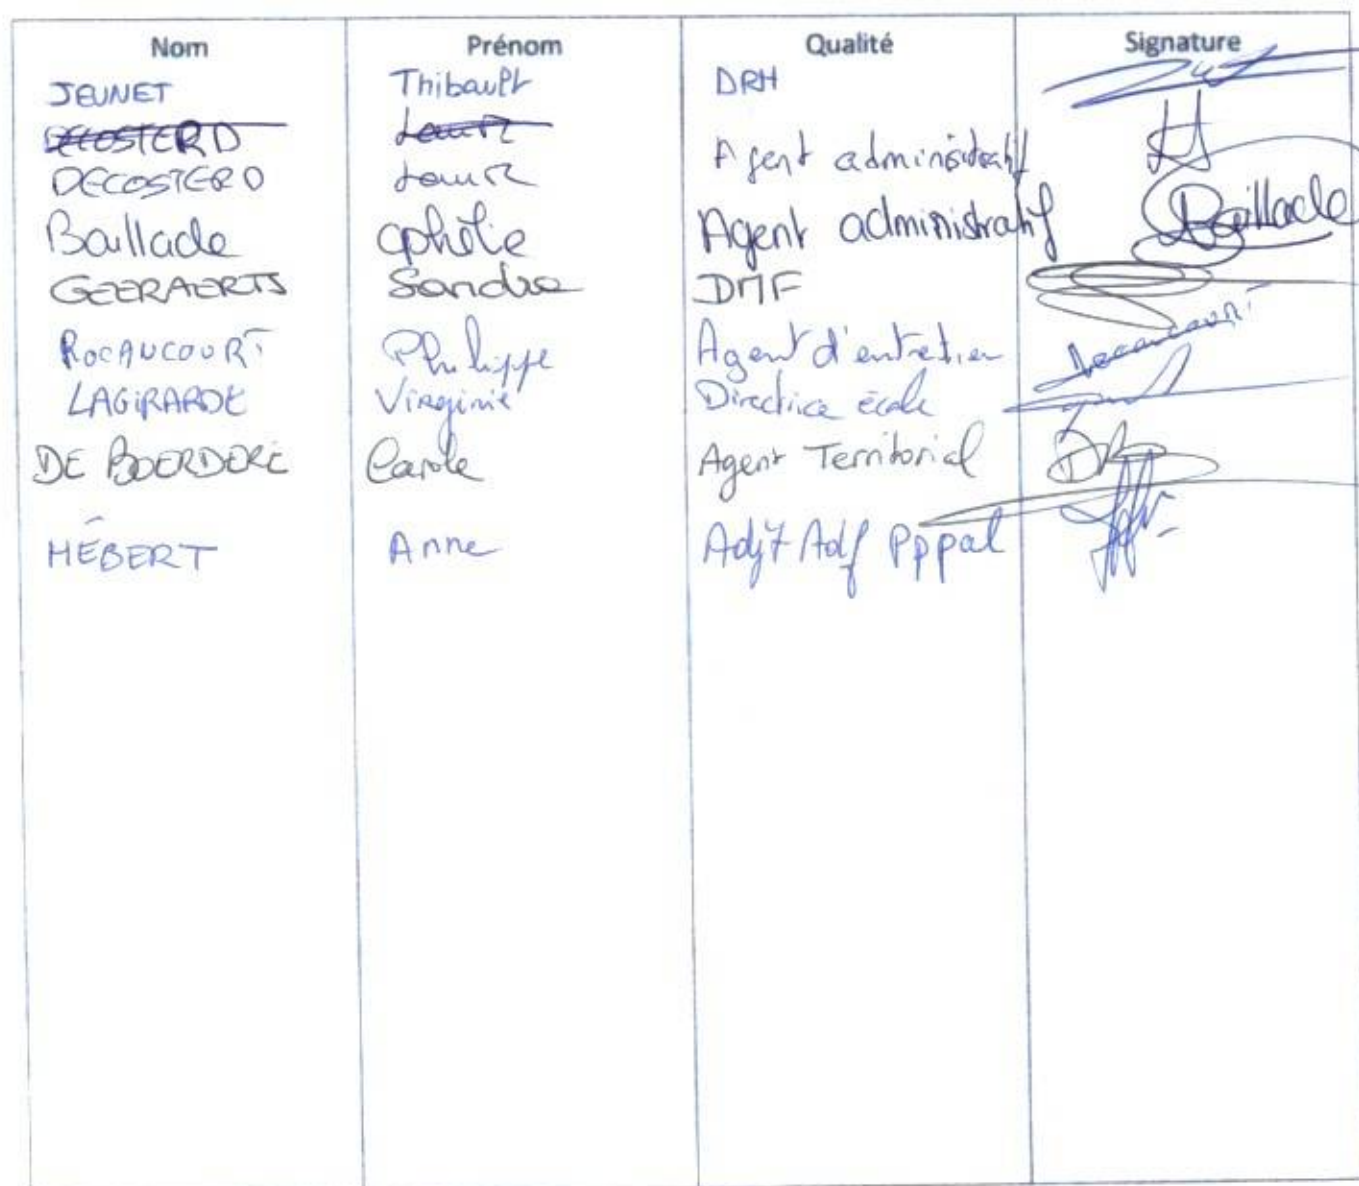 Nom Prénom Qualité Signature
JEUNET Thibault DRH
DECOSTERD Laure
DECOSTERD Laure Agent administratif
Baillade Ophélie Agent administratif Baillade
GEERAERTS Sandra DMF
ROCANCOURT Philippe Agent d'entretien Rocancourt
LAGIRARDE Virginie Directrice école
DE BOERDERE Carole Agent Territorial DB
HÉBERT Anne Adjt Adf Pppal